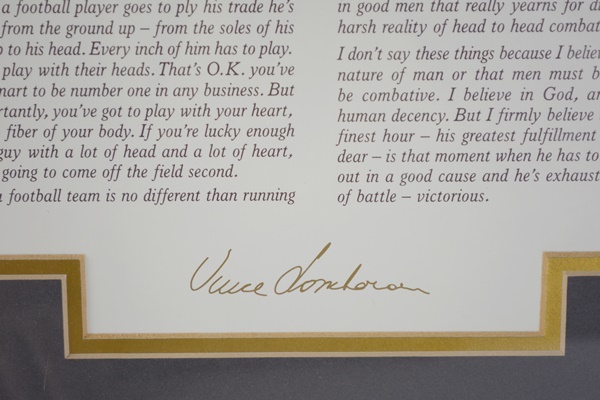 a football player goes to ply his trade he's
from the ground up – from the soles of his
to his head. Every inch of him has to play.
play with their heads. That's O.K. you've
to be number one in any business. But
you've got to play with your heart,
fiber of your body. If you're lucky enough
guy with a lot of head and a lot of heart,
going to come off the field second.
football team is no different than running
in good men that really yearns for
harsh reality of head to head
I don't say these things because I
nature of man or that men must
be combative. I believe in God,
human decency. But I firmly believe
finest hour – his greatest fulfillment
dear – is that moment when he has to
out in a good cause and he's
of battle – victorious.
Vince Lombardi